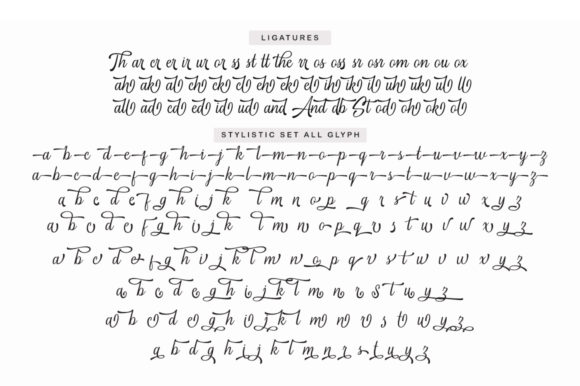 LIGATURES
Th ar cr er ir ur or ss st tt the rr os oss sr osr om on ou ox
ah ak al ch ck cl eh ek el ih ik il uh uk ul ll
all ad cd ed id ud and And db St od oh ok ol
STYLISTIC SET ALL GLYPH
a b c d e f g h i j k l m n o p q r s t u v w x y z
a b c d e f g h i j k l m n o p q r s t u v w x y z
a b c d e f g h i j k l m n o p q r s t u v w x y z
a b c d e f g h i j k l m n o p q r s t u v w x y z
a b c d e f g h i j k l m n o p q r s t u v w x y z
a b c d e g h i j k l m n r s t u y z
a b c d e g h i j k l m n o r s t o w y z
a b d g h i j k l m n r s t u y z